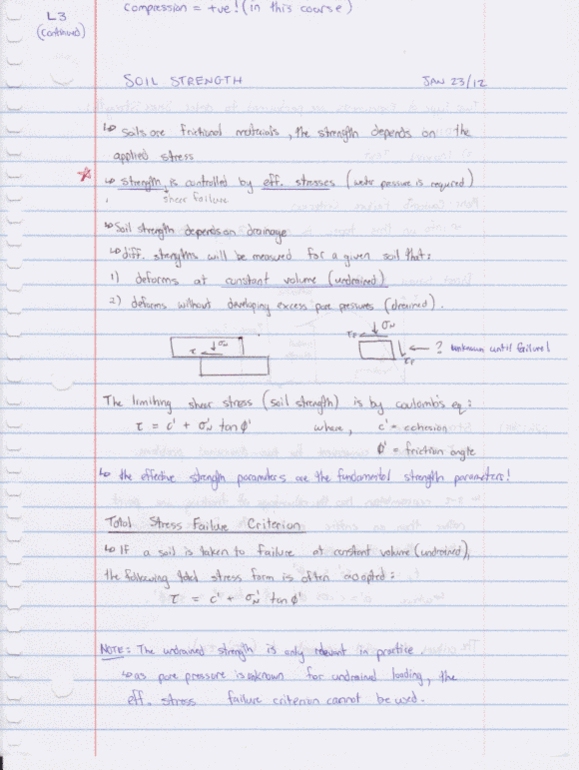 L3
(continued)
compression = +ve! (in this course)
SOIL STRENGTH JAN 23/12
↳ Soils are frictional materials, the strength depends on the
applied stress
↳ strength is controlled by eff. stresses (water pressure is required)
shear failure
↳ Soil strength depends on drainage
↳ diff. strengths will be measured for a given soil that:
1) deforms at constant volume (undrained)
2) deforms without developing excess pore pressures (drained).
τ σN
τF σN
← ? unknown until failure!
τF
The limiting shear stress (soil strength) is by coulomb's eq:
τ = c' + σ'N tan φ' where, c' = cohesion
φ' = friction angle
↳ the effective strength parameters are the fundamental strength parameters!
Total Stress Failure Criterion
↳ IF a soil is taken to failure at constant volume (undrained),
the following total stress form is often adopted:
τ = c' + σ'N tan φ'
NOTE: The undrained strength is only relevant in practice.
↳ as pore pressure is unknown for undrained loading, the
eff. stress failure criterion cannot be used.